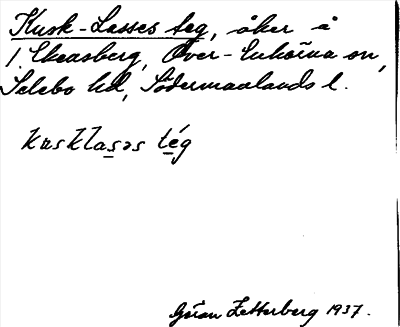 Kusk-Lasses teg, åker å
1. Ekensberg, Över-Enhörna sn,
Selebo hd, Södermanlands l.
kusklasəs tég
Göran Zetterberg 1937.